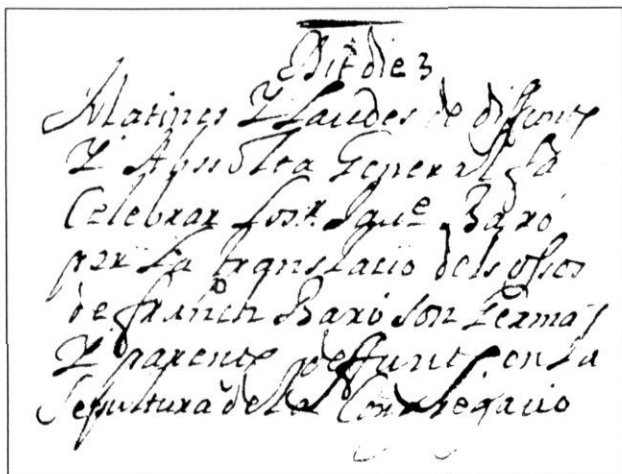 Dit die 3
Matines Y Laudes de difunts
Y Absolta General fa
Celebrar lo s.r Igna.e Baró
per la translacio dels ossos
de franch Baró son germa
Y parents defunts en la
Sepultura de la Congregacio